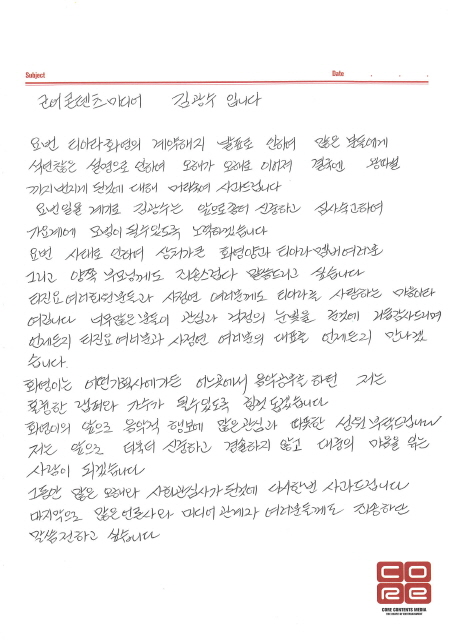 Subject
Date . . .
코어콘텐츠미디어 김광수 입니다
요번 티아라 화영의 계약해지 발표로 인하여 많은 분들에게
석연찮은 설명으로 인하여 오해가 오해로 이어져 결국엔 왕따설
까지 번지게 된것에 대해 머리숙여 사과드립니다
요번일을 계기로 김광수는 앞으로 좀더 신중하고 심사숙고하여
가요계에 모범이 될수있도록 노력하겠습니다
요번 사태로 인하여 상처가 큰 화영양과 티아라 멤버 여러분
그리고 양쪽 부모님께도 죄송스럽다 말씀드리고 싶습니다
티진요 여러회원분들과 사정연 여러분께도 티아라를 사랑하는 마음이라
여깁니다 너무많은분들이 관심과 걱정의 눈빛을 준것에 감사드리며
언제든지 티진요 여러분과 사정연 여러분의 대표를 언제든지 만나겠
습니다.
화영이는 어떤기획사에 가든 어느곳에서 음악공부를 하던 저는
훌륭한 랩퍼와 가수가 될수있도록 힘껏 돕겠습니다
화영이의 앞으로 음악적 행보에 많은관심과 따뜻한 성원 부탁드립니다
저는 앞으로 더욱더 신중하고 경솔하지 않고 대중의 마음을 읽는
사람이 되겠습니다
그동안 많은 오해와 사회관심사가 된것에 다시한번 사과드립니다
마지막으로 많은언론사와 미디어 관계자 여러분들께도 죄송하단
말씀 전하고 싶습니다
CORE
CORE CONTENTS MEDIA